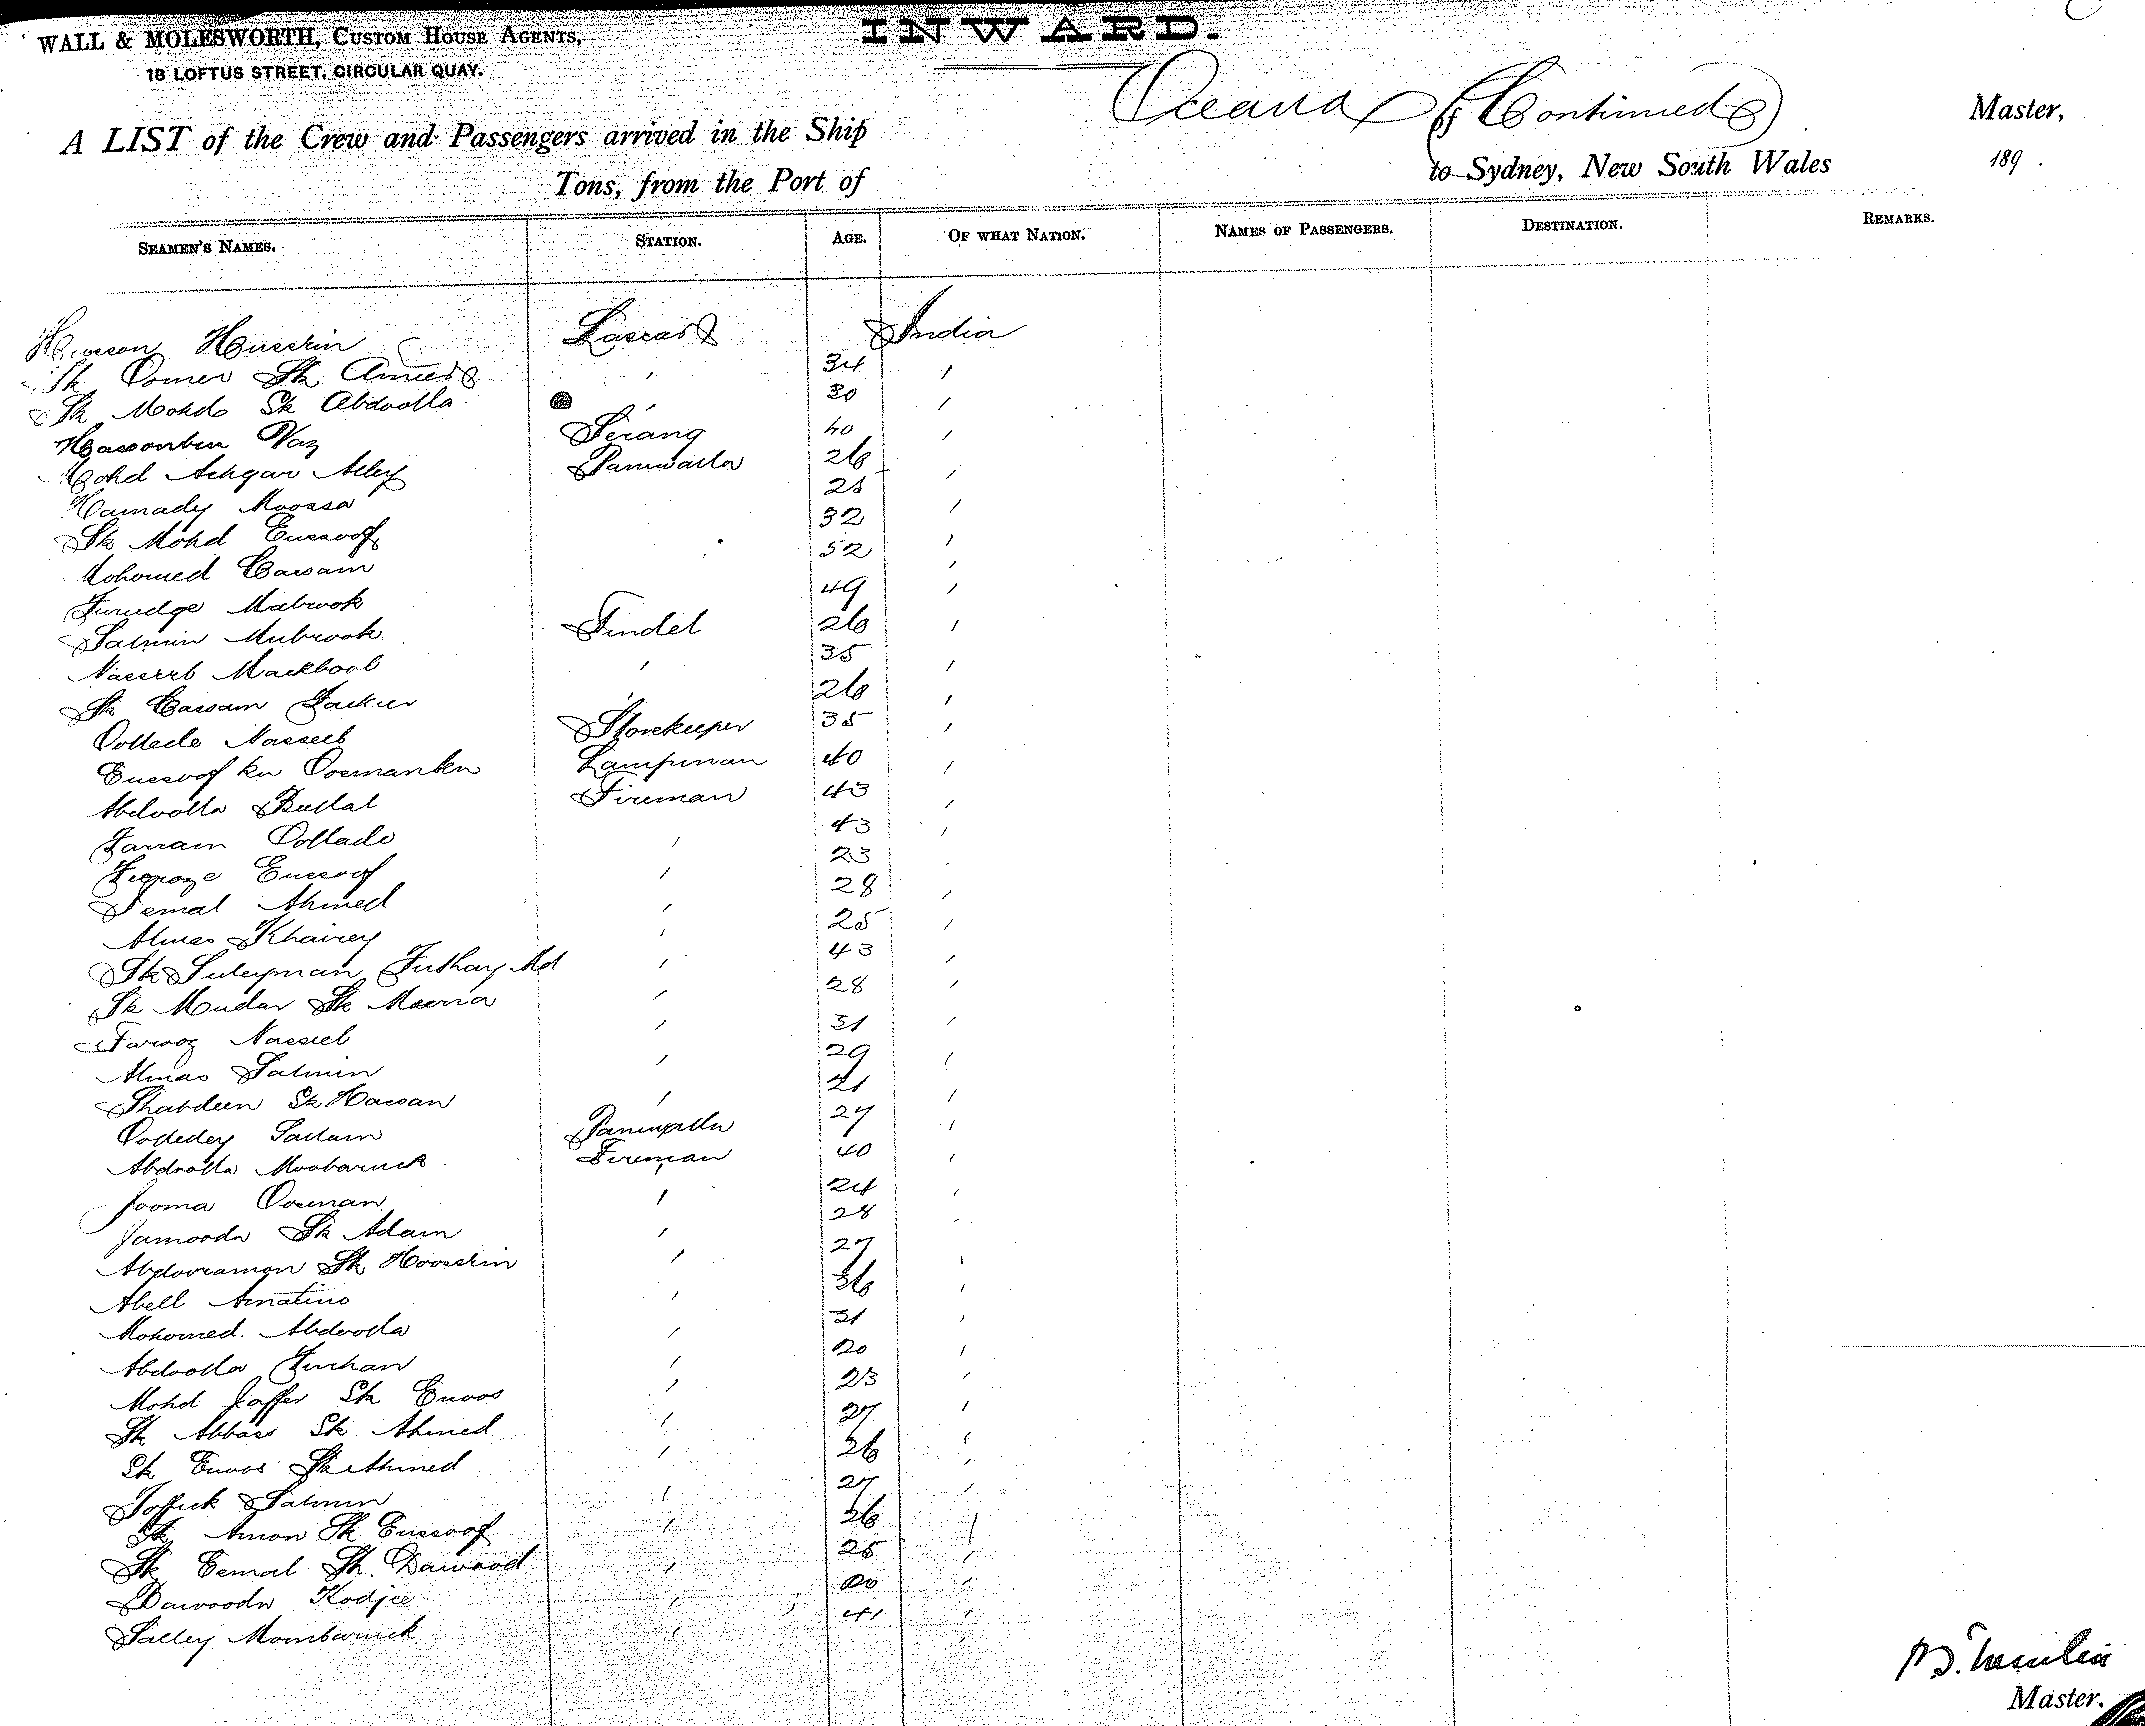 WALL & MOLESWORTH, CUSTOM HOUSE AGENTS,
18 LOFTUS STREET, CIRCULAR QUAY.
INWARD.
Oceana (Continued)
A LIST of the Crew and Passengers arrived in the Ship Master,
Tons, from the Port of to Sydney, New South Wales 189 .
SEAMEN'S NAMES. STATION. AGE. OF WHAT NATION. NAMES OF PASSENGERS. DESTINATION. REMARKS.
Husson Hussein Lascar India
Sk Oomer Sk Ameer ' 34 '
Sk Mohd Sk Abdoolla ' 30 '
Hassonbin Naz Serang 40 '
Mohd Ashgar Alley Paniwalla 26 '
Hamady Moossa 28 '
Sk Mohd Eussoof 32 '
Mohomed Cassam 52 '
Furudge Mabrook 49 '
Salmin Mubrook Tindel 26 '
Nasseeb Mackbool ' 35 '
Sk Cassam 26 '
Nasseeb Storekeeper 35 '
Eussoof kn Oosmankn Lampman 40 '
Abdoolla Bullal Fireman 43 '
Farram ' 43 '
Feroze Eussoof ' 23 '
Jemal Ahmed ' 28 '
Almas Khairey ' 25 '
Sk Suleyman Md ' 43 '
Sk Mudar Sk ' 28 '
Farooz Nasseeb ' 31 '
Almas Salmin ' 29 '
Shabdeen Sk Hassan ' 21 '
Paniwalla 27 '
Abdoolla Moobaruck Fireman 40 '
Jooma Oosman ' 24 '
Jamooda Sk Adam ' 28 '
Abdooramon Sk Hoosein ' 27 '
Abell ' 36 '
Mohomed Abdoolla ' 31 '
Abdoolla Furhan ' 20 '
Mohd Jaffer Sk Enoos ' 23 '
Sk Abbass Sk Ahmed ' 27 '
Sk Enoos Sk Ahmed ' 26 '
Toffick Salmin ' 27 '
Sk Amon Sk Eussoof ' 36 '
Sk Esmal Sk Dawood ' 25 '
Dawooda Hodjee ' 20 '
Salley Mombaruck ' 41 '
Master.